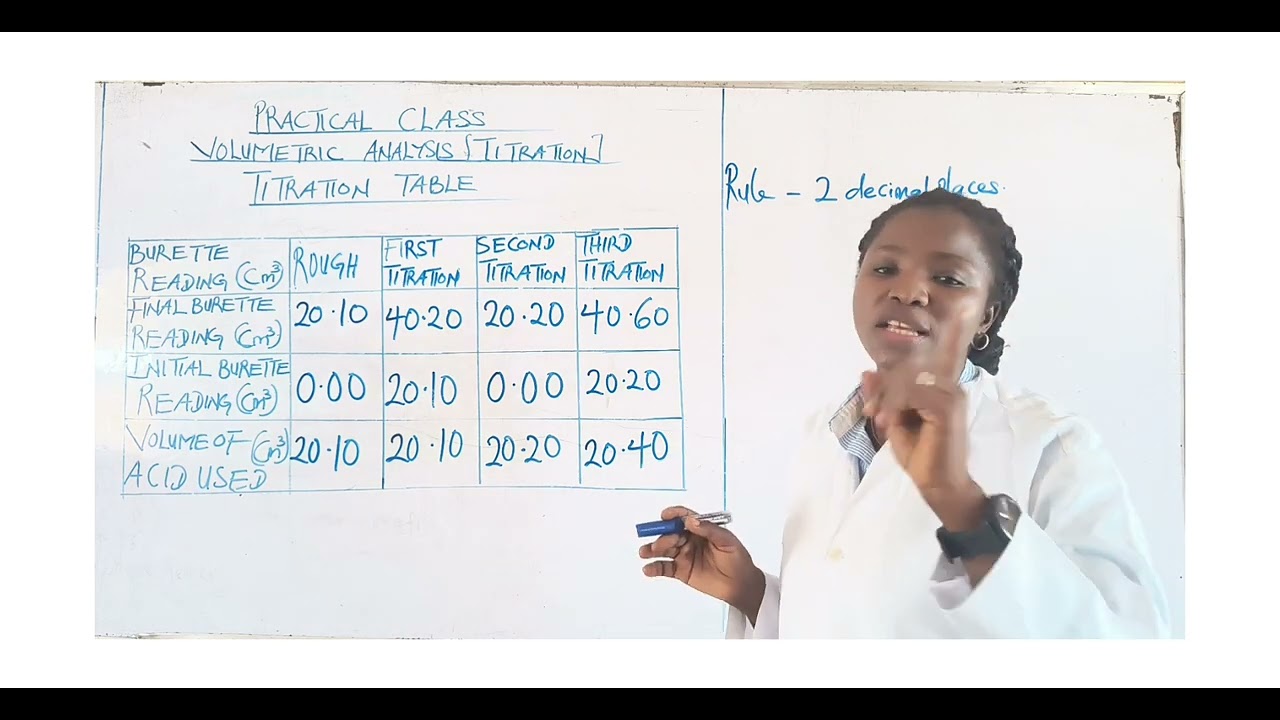 PRACTICAL CLASS
VOLUMETRIC ANALYSIS [TITRATION]
TITRATION TABLE
Rule - 2 decimal places.
BURETTE READING (Cm³) ROUGH FIRST TITRATION SECOND TITRATION THIRD TITRATION
FINAL BURETTE READING (Cm³) 20.10 40.20 20.20 40.60
INITIAL BURETTE READING (Cm³) 0.00 20.10 0.00 20.20
VOLUME OF (Cm³) ACID USED 20.10 20.10 20.20 20.40